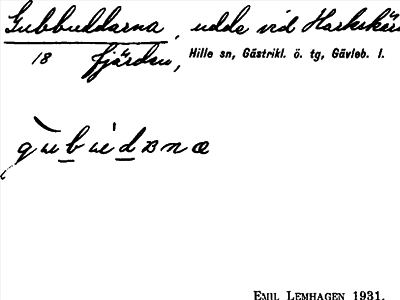 Gubbuddarna, udde vid Harkskärs
18 fjärden, Hille sn, Gästrikl. ö. tg, Gävleb. l.
EMIL LEMHAGEN 1931.